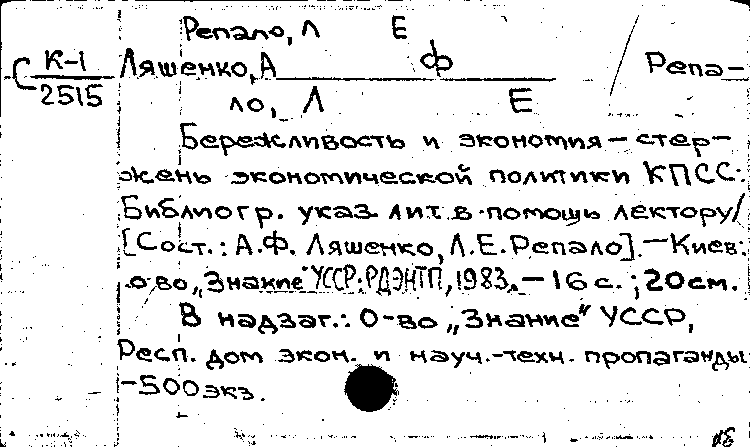 Репало, Л Е
С К-1 Ляшенко, А Ф / Репа-
2515 ло, Л Е
Бережливость и экономия – стер-
жень экономической политики КПСС:
Библиогр. указ. лит. в помощь лектору/
[Сост.: А.Ф. Ляшенко, Л.Е. Репало]. – Киев:
о-во „Знание" УССР: РДЭНТП, 1983. – 16 с.; 20 см.
В надзаг.: О-во „Знание" УССР,
Респ. дом экон. и науч.-техн. пропаганды
– 500 экз.